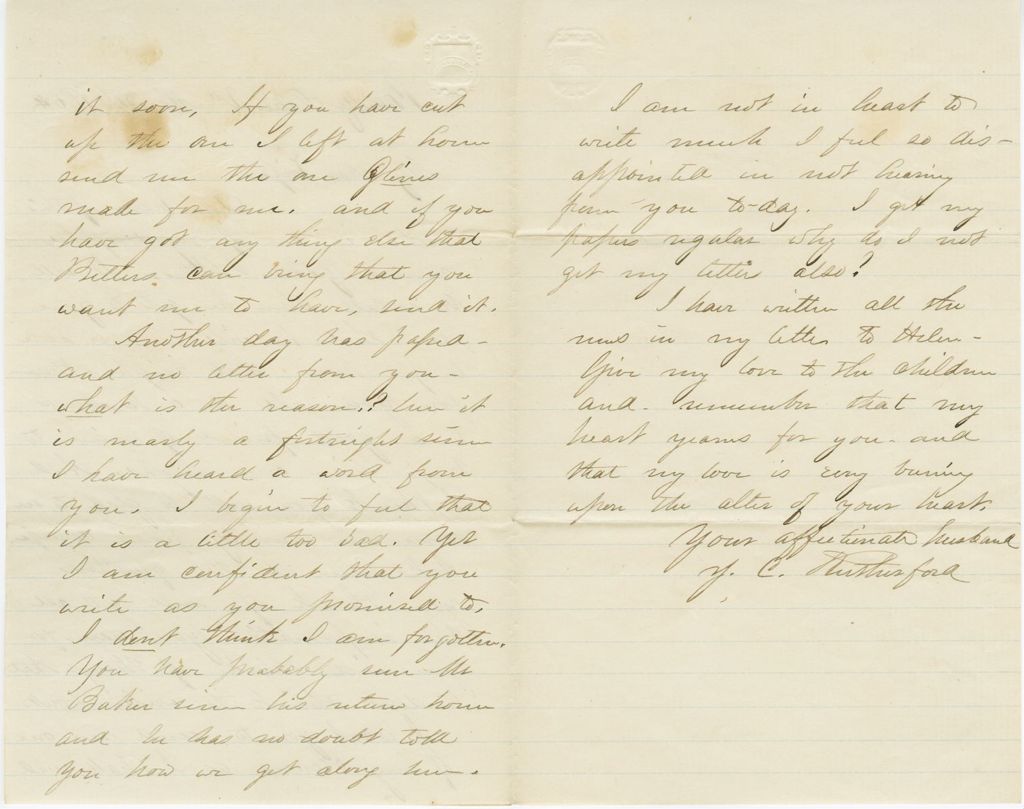 it soon, If you have cut
up the one I left at home
send me the one Glines
made for me. and if you
have got any thing else that
Betters can bring that you
want me to have, send it.
Another day has passed -
and no letter from you -
what is the reason.? here it
is nearly a fortnight since
I have heard a word from
you. I begin to feel that
it is a little too bad. Yet
I am confident that you
write as you promised to.
I dont think I am forgotten.
You have probably seen Mr
Baker since his return home
and he has no doubt told
you how we get along here.
I am not in heart to
write much I feel so dis-
appointed in not hearing
from you to-day. I get my
papers regular why do I not
get my letters also?
I have written all the
news in my letter to Helen -
Give my love to the children
and - remember that my
heart yearns for you - and
that my love is ever burning
upon the alter of your heart.
Your affectionate husband
J. C. Rutherford